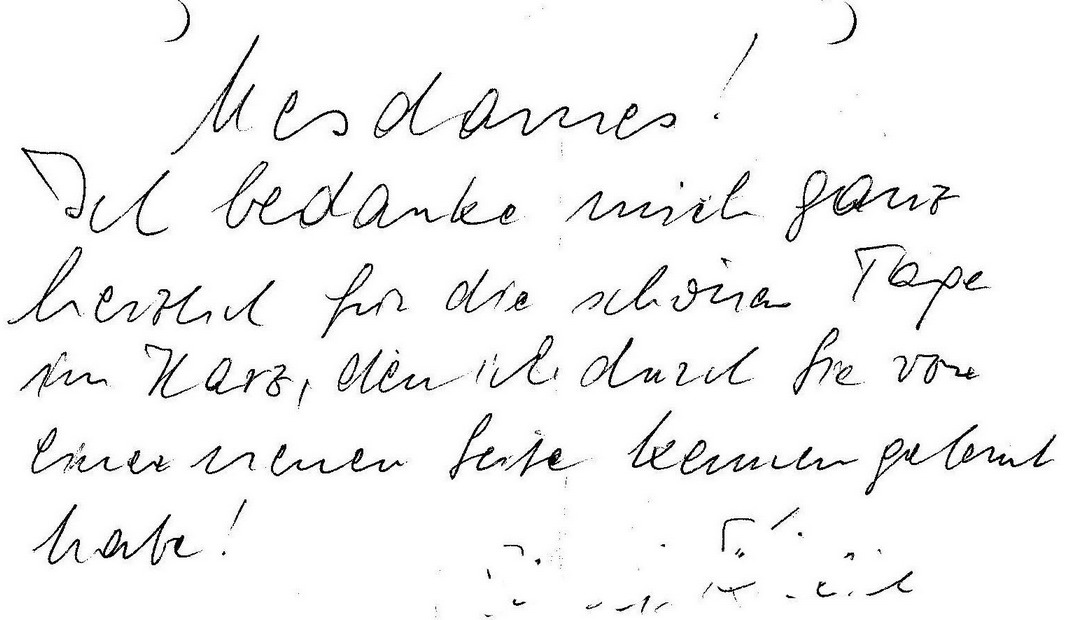 Mesdames!
Ich bedanke mich ganz
herzlich für die schönen Tage
im Harz, den ich durch Sie von
einer neuen Seite kennen gelernt
habe!